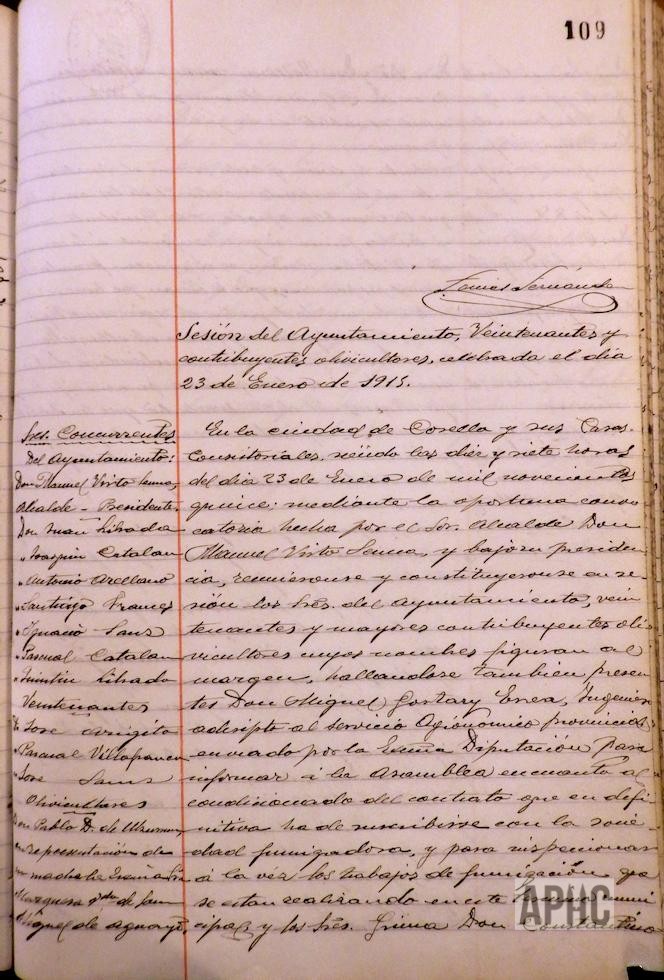 109
Sesión del Ayuntamiento, Veintenantes y
contribuyentes olivicultores, celebrada el día
23 de Enero de 1915.
Sres. Concurrentes
Del Ayuntamiento:
Don Manuel Virto
Alcalde - Presidente
Don Juan Librada
" Joaquin Catalan
" Antonio Arellano
" Santiago Frances
" Ignacio Sanz
" Pascual Catalan
" Librada
Veintenantes
Jose
" Pascual Villafranca
" Jose Sanz
Olivicultores
Don Pablo D. de
en representación de
su madre la Excma
Marquesa de San
Miguel de Aguayo,
En la ciudad de Corella y sus Casas
Consistoriales, siendo las diez y siete horas
del día 23 de Enero de mil novecientos
quince: mediante la oportuna convo
catoria hecha por el Sor. Alcalde Don
Manuel Virto y bajo su presiden
cia, reunieronse y constituyeronse en se
sión los Sres. del Ayuntamiento, vein
tenantes y mayores contribuyentes oli
vicultores cuyos nombres figuran al
margen, hallandose tambien presen
tes Don Miguel Ingeniero
adscripto al servicio Agronómico provincial,
enviado por la Excma Diputación para
informar á la Asamblea en cuanto al
condicionado del contrato que en defi
nitiva ha de suscribirse con la socie
dad fumigadora, y para inspeccionar
á la vez los trabajos de fumigación que
se estan realizando en este termino muni
cipal; y los Sres. Don Constantino
APHC